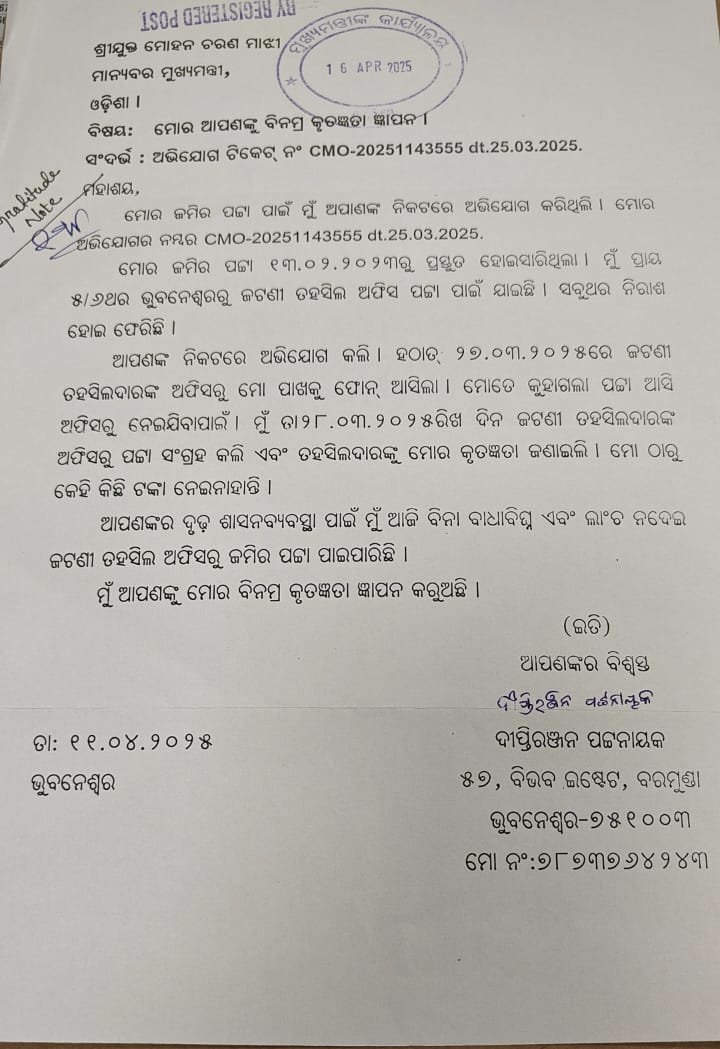 BY REGISTERED POST
ଶ୍ରୀଯୁକ୍ତ ମୋହନ ଚରଣ ମାଝୀ
ମାନ୍ୟବର ମୁଖ୍ୟମନ୍ତ୍ରୀ,
ଓଡ଼ିଶା ।
ମୁଖ୍ୟମନ୍ତ୍ରୀଙ୍କ କାର୍ଯ୍ୟାଳୟ
16 APR 2025
ବିଷୟ: ମୋର ଆପଣଙ୍କୁ ବିନମ୍ର କୃତଜ୍ଞତା ଜ୍ଞାପନ ।
ସଂଦର୍ଭ : ଅଭିଯୋଗ ଟିକେଟ୍ ନଂ CMO-20251143555 dt.25.03.2025.
Gratitude
Note
ମହାଶୟ,
ମୋର ଜମିର ପଟ୍ଟା ପାଇଁ ମୁଁ ଅପାଣଙ୍କ ନିକଟରେ ଅଭିଯୋଗ କରିଥିଲି । ମୋର
ଅଭିଯୋଗର ନମ୍ବର CMO-20251143555 dt.25.03.2025.
ମୋର ଜମିର ପଟ୍ଟା ୧୩.୦୨.୨୦୨୩ରୁ ପ୍ରସ୍ତୁତ ହୋଇସାରିଥିଲା । ମୁଁ ପ୍ରାୟ
୫/୬ଥର ଭୁବନେଶ୍ୱରରୁ ଜଟଣୀ ତହସିଲ ଅଫିସ ପଟ୍ଟା ପାଇଁ ଯାଇଛି । ସବୁଥର ନିରାଶ
ହୋଇ ଫେରିଛି ।
ଆପଣଙ୍କ ନିକଟରେ ଅଭିଯୋଗ କଲି । ହଠାତ୍ ୨୭.୦୩.୨୦୨୫ରେ ଜଟଣୀ
ତହସିଲଦାରଙ୍କ ଅଫିସରୁ ମୋ ପାଖକୁ ଫୋନ୍ ଆସିଲା । ମୋତେ କୁହାଗଲା ପଟ୍ଟା ଆସି
ଅଫିସରୁ ନେଇଯିବାପାଇଁ । ମୁଁ ତା୨୮.୦୩.୨୦୨୫ରିଖ ଦିନ ଜଟଣୀ ତହସିଲଦାରଙ୍କ
ଅଫିସରୁ ପଟ୍ଟା ସଂଗ୍ରହ କଲି ଏବଂ ତହସିଲଦାରଙ୍କୁ ମୋର କୃତଜ୍ଞତା ଜଣାଇଲି । ମୋ ଠାରୁ
କେହି କିଛି ଟଙ୍କା ନେଇନାହାନ୍ତି ।
ଆପଣଙ୍କର ଦୃଢ଼ ଶାସନବ୍ୟବସ୍ଥା ପାଇଁ ମୁଁ ଆଜି ବିନା ବାଧାବିଘ୍ନ ଏବଂ ଲାଂଚ ନଦେଇ
ଜଟଣୀ ତହସିଲ ଅଫିସରୁ ଜମିର ପଟ୍ଟା ପାଇପାରିଛି ।
ମୁଁ ଆପଣଙ୍କୁ ମୋର ବିନମ୍ର କୃତଜ୍ଞତା ଜ୍ଞାପନ କରୁଅଛି ।
(ଇତି)
ଆପଣଙ୍କର ବିଶ୍ୱସ୍ତ
ଦୀପ୍ତିରଞ୍ଜନ ପଟ୍ଟନାୟକ
ଦୀପ୍ତିରଞ୍ଜନ ପଟ୍ଟନାୟକ
୫୭, ବିଭବ ଇଷ୍ଟେଟ, ବରମୁଣ୍ଡା
ଭୁବନେଶ୍ୱର-୭୫୧୦୦୩
ମୋ ନଂ:୭୮୭୩୭୬୪୨୪୩
ତା: ୧୧.୦୪.୨୦୨୫
ଭୁବନେଶ୍ୱର